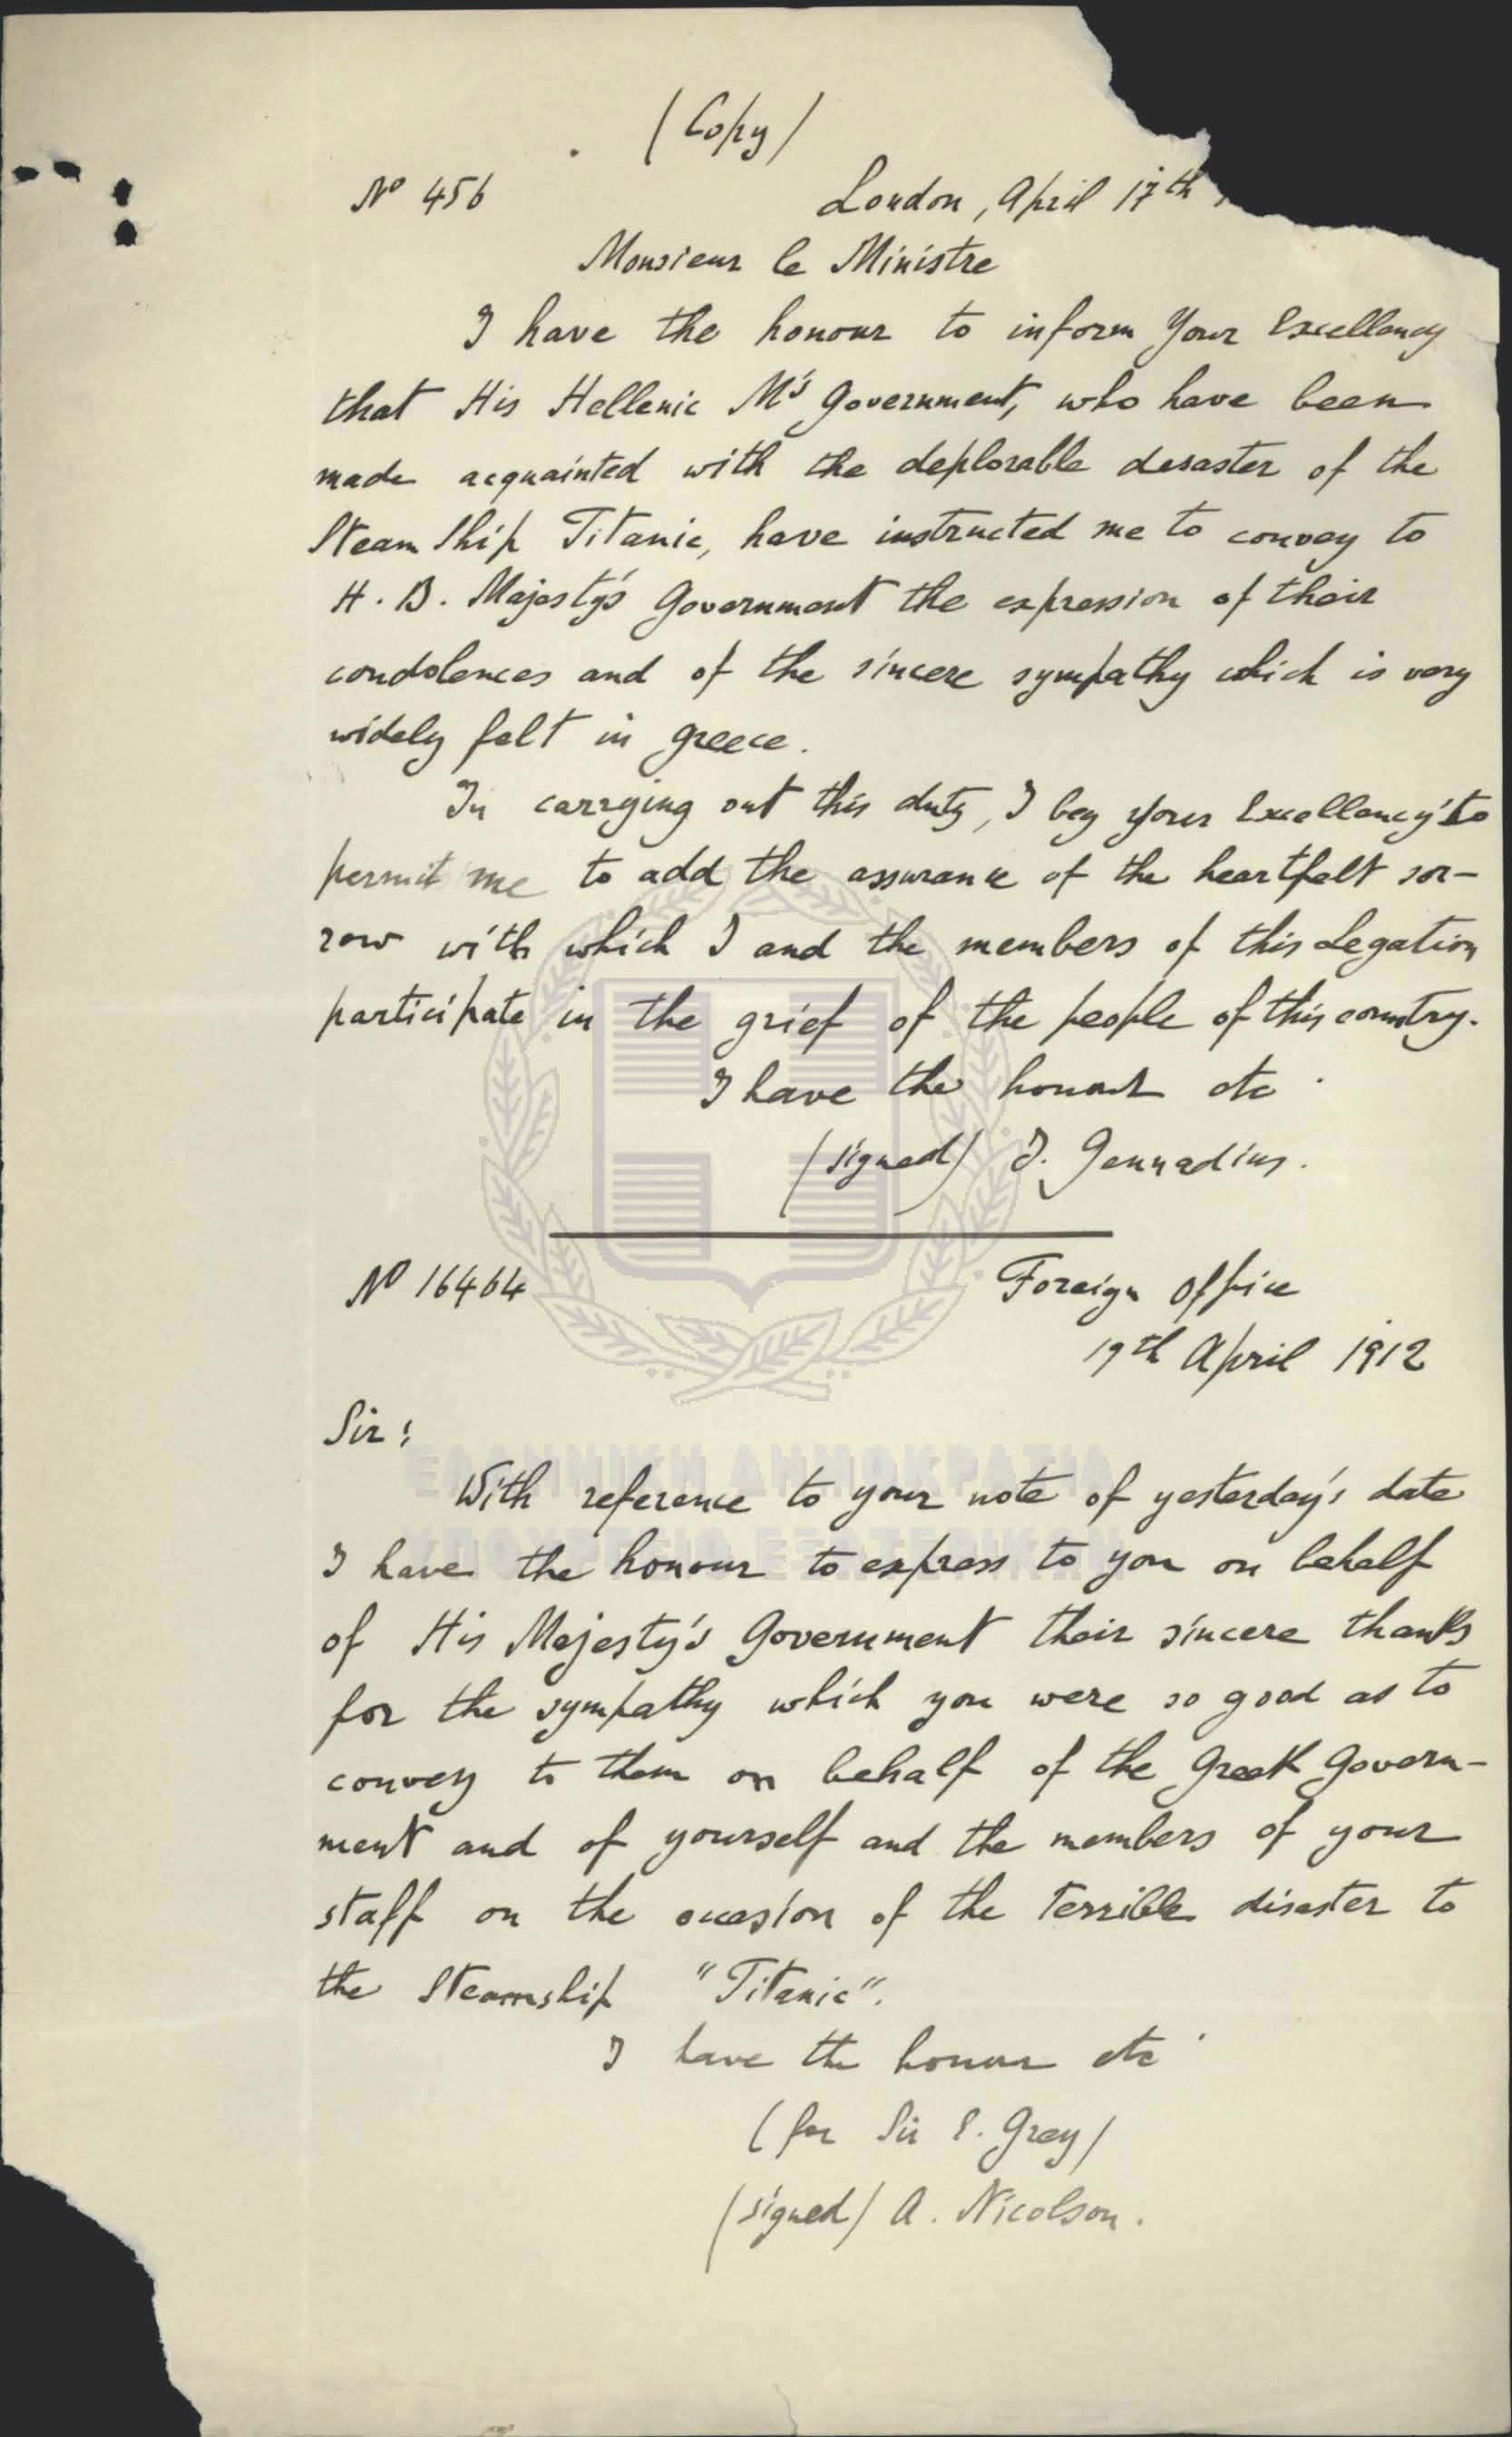 (Copy)
Nº 456
London, April 17th,
Monsieur le Ministre
I have the honour to inform Your Excellency
that His Hellenic M's Government, who have been
made acquainted with the deplorable desaster of the
Steam Ship Titanic, have instructed me to convey to
H. B. Majesty's Government the expression of their
condolences and of the sincere sympathy which is very
widely felt in Greece.
In carrying out this duty, I beg Your Excellency to
permit me to add the assurance of the heartfelt sor-
row with which I and the members of this Legation
participate in the grief of the people of this country.
I have the honour etc
(signed) J. Gennadius.
Nº 16464
Foreign Office
19th April 1912
Sir:
ΕΛΛΗΝΙΚΗ ΔΗΜΟΚΡΑΤΙΑ
With reference to your note of yesterday's date
ΥΠΟΥΡΓΕΙΟ ΕΞΩΤΕΡΙΚΩΝ
I have the honour to express to you on behalf
of His Majesty's Government their sincere thanks
for the sympathy which you were so good as to
convey to them on behalf of the Greek Govern-
ment and of yourself and the members of your
staff on the occasion of the terrible disaster to
the Steamship "Titanic".
I have the honour etc
(for Sir E. Grey)
(signed) A. Nicolson.